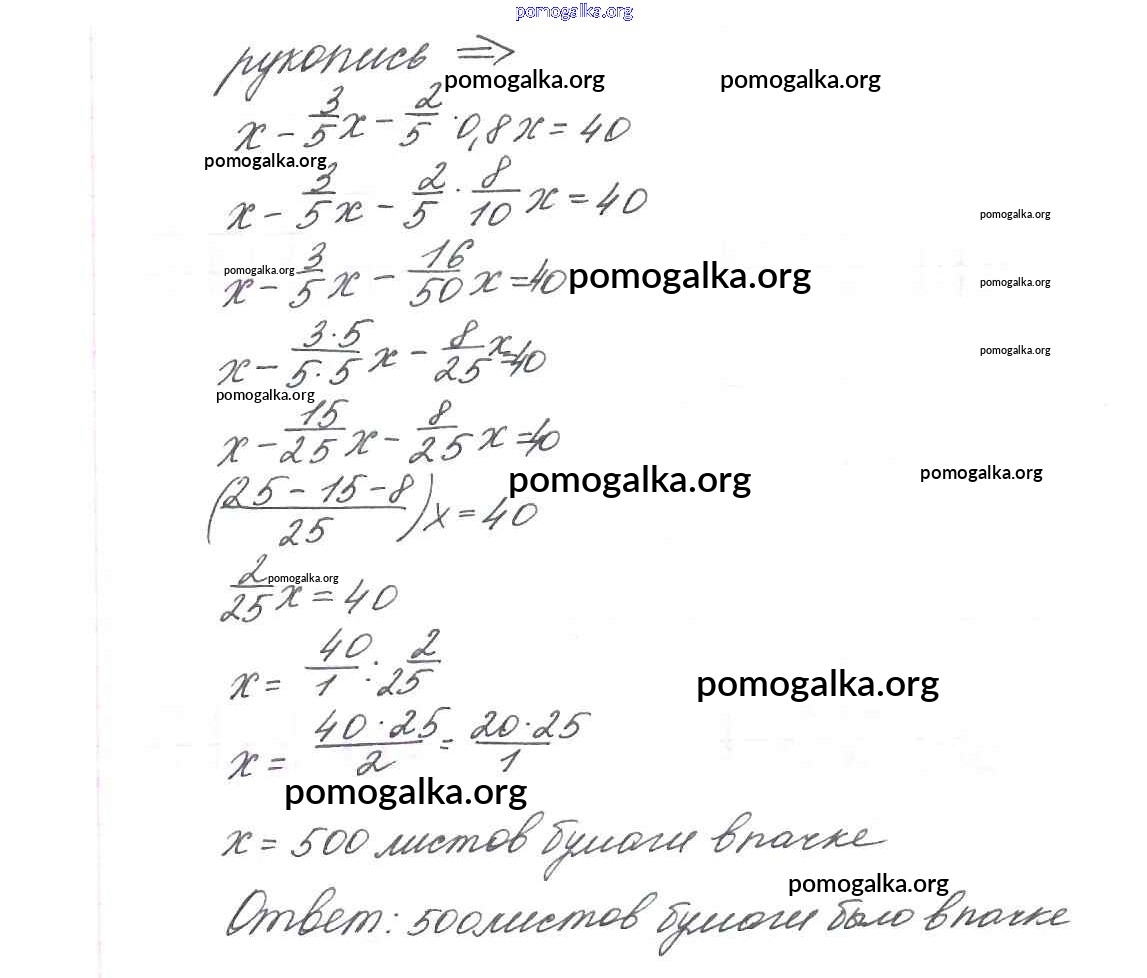 pomogalka.org
рукопись ⇒
pomogalka.org pomogalka.org
x - 3/5 x - 2/5 · 0,8 x = 40
pomogalka.org
x - 3/5 x - 2/5 · 8/10 x = 40
pomogalka.org
pomogalka.org pomogalka.org
x - 3/5 x - 16/50 x = 40
pomogalka.org
x - 3·5/5·5 x - 8/25 x = 40
pomogalka.org
pomogalka.org
x - 15/25 x - 8/25 x = 40
pomogalka.org pomogalka.org
(25 - 15 - 8/25) x = 40
pomogalka.org
2/25 x = 40
x = 40/1 : 2/25
pomogalka.org
x = 40·25/2 = 20·25/1
pomogalka.org
x = 500 листов бумаги в пачке
pomogalka.org
Ответ: 500 листов бумаги было в пачке